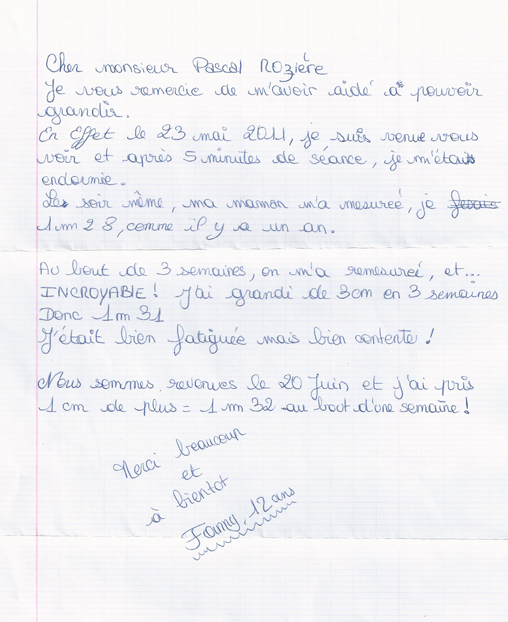 Cher monsieur Pascal Rozière
Je vous remercie de m'avoir aidé à pouvoir
grandir.
En Effet le 23 mai 2011, je suis venue vous
voir et après 5 minutes de séance, je m'étais
endormie.
Le soir même, ma maman m'a mesureé, je faisais
1m 28, comme il y a un an.
Au bout de 3 semaines, on m'a remesureé, et...
INCROYABLE! J'ai grandi de 3cm en 3 semaines
Donc 1m 31
J'était bien fatiguée mais bien contente!
Nous sommes revenues le 20 Juin et j'ai pris
1 cm de plus = 1 m 32 au bout d'une semaine!
Merci beaucoup
et
à bientot
Fanny, 12 ans